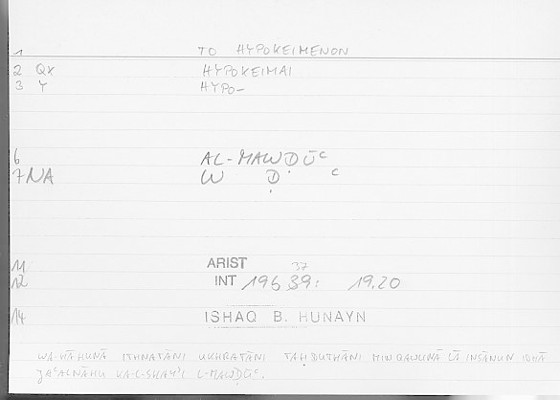 1 TO HYPOKEIMENON
2 QX HYPOKEIMAI
3 Y HYPO-
6 AL-MAWḌŪᶜ
7 NA W Ḍ ᶜ
11 ARIST 37
12 INT 196 39: 19.20
14 ISHAQ B. HUNAYN
WA-HĀHUNĀ ITHNATĀNI UKHRATĀNI TAḤDUTHĀNI MIN QAWLINĀ LĀ INSĀNUN IDHĀ
JAᶜALNĀHU KA-L-SHAYʾI L-MAWḌŪᶜ.